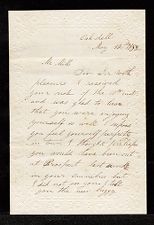 Oak dell
May 12th
Mr. Mills
Dear Sir with
pleasure I received
your note of the 10th inst
and was glad to learn
that you were enjoying
yourself as well I hope
you feel yourself perfectly
at home I thought perhaps
you would have been out
at Prospect last
in your
I did not you some I tell
you the